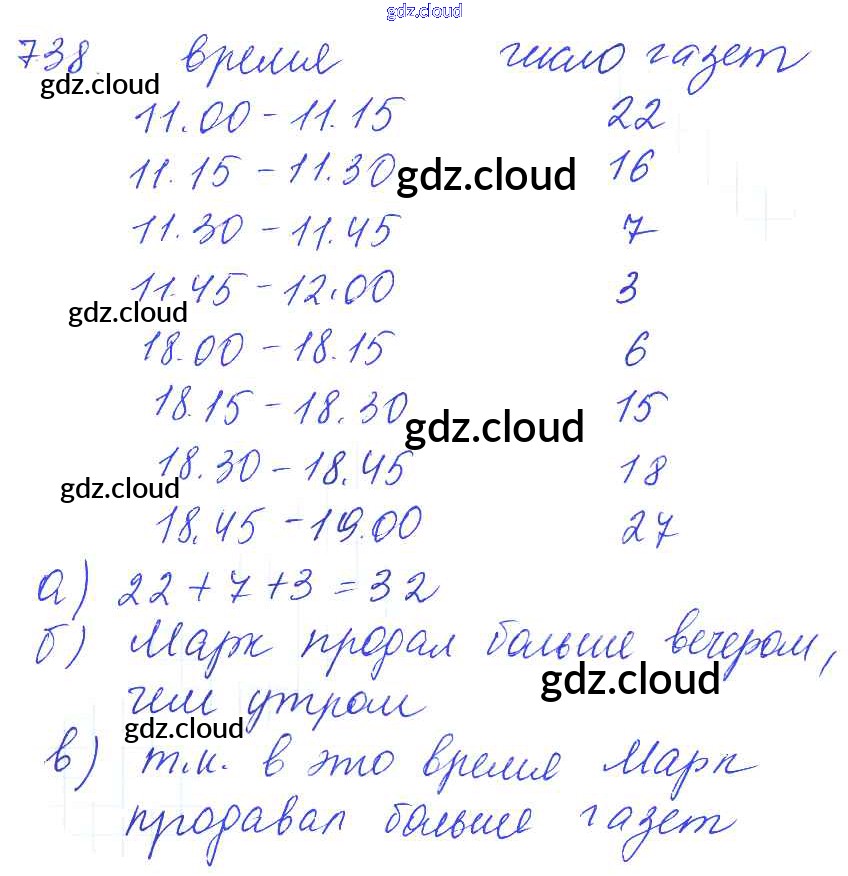 gdz.cloud
738. время число газет
gdz.cloud
11.00 - 11.15 22
11.15 - 11.30 16
gdz.cloud
11.30 - 11.45 7
11.45 - 12.00 3
gdz.cloud
18.00 - 18.15 6
18.15 - 18.30 15
gdz.cloud
18.30 - 18.45 18
gdz.cloud
18.45 - 19.00 27
а) 22 + 7 + 3 = 32
б) Марк продал больше вечером,
gdz.cloud
чем утром
gdz.cloud
в) т.к. в это время Марк
продавал больше газет